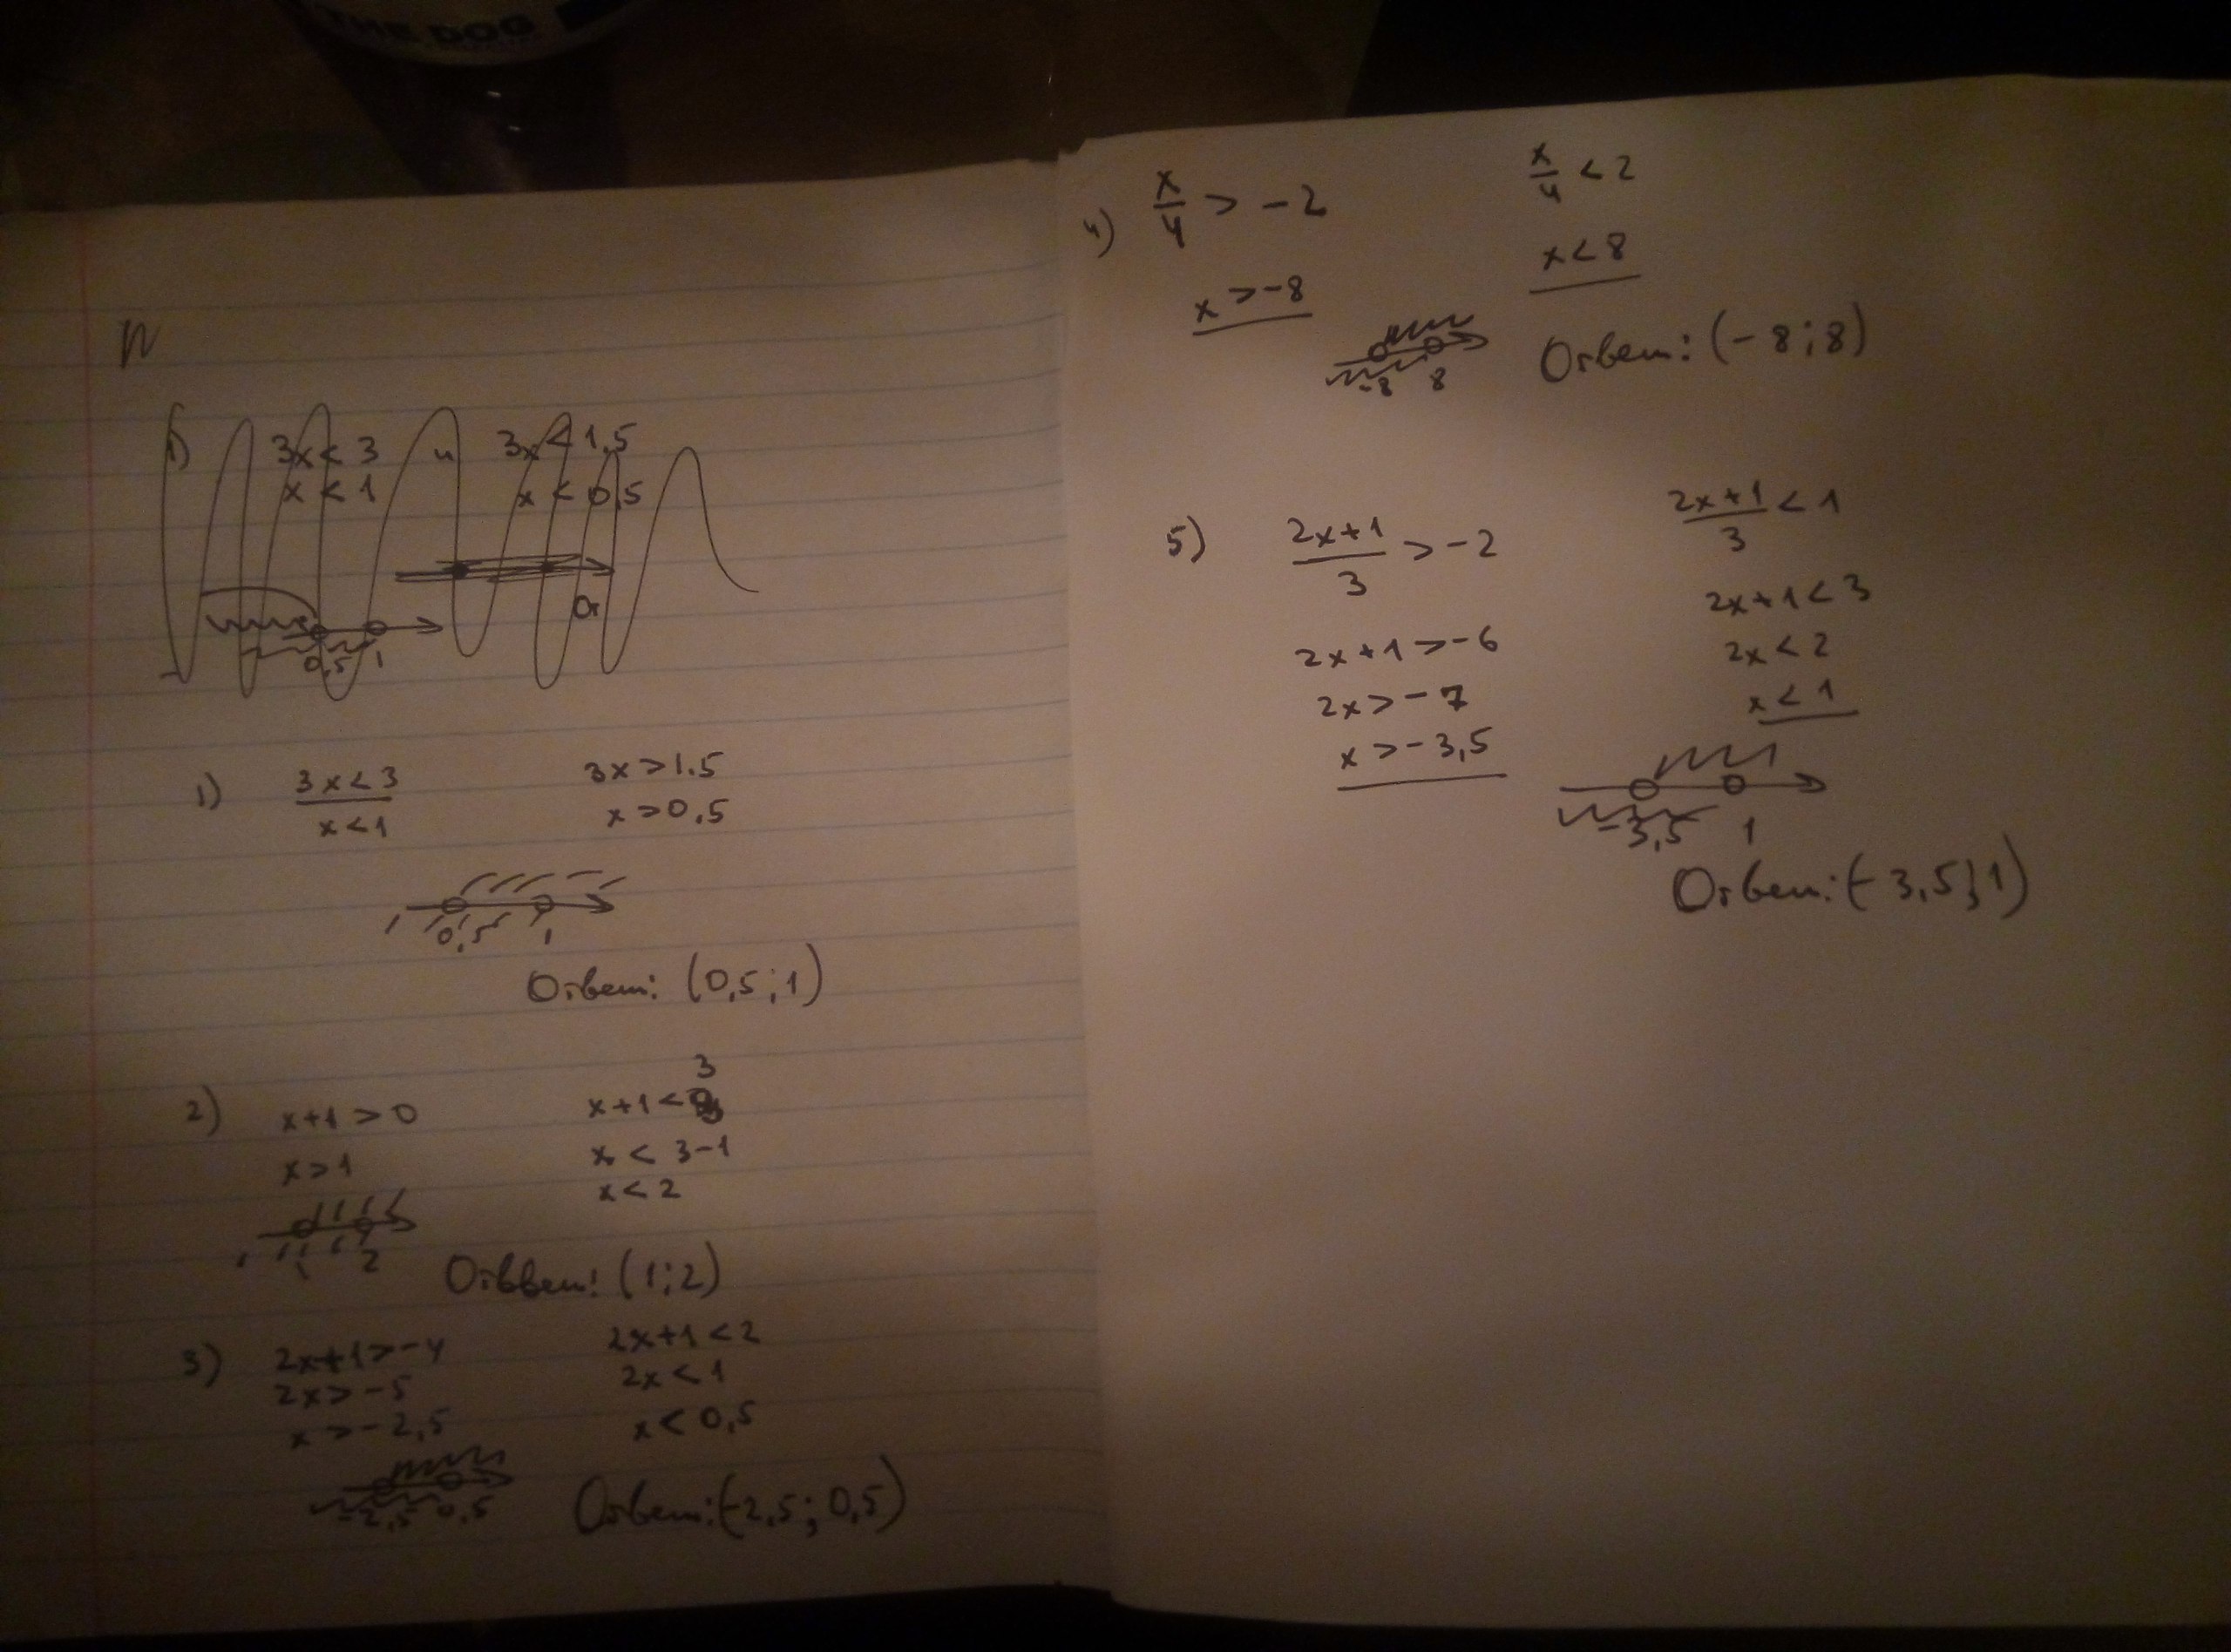 THE DOG
N
1) 3x < 3 и 3x < 1,5
x < 1 x < 0,5
От
0,5 1
1) 3x < 3 3x > 1.5
x < 1 x > 0,5
0,5 1
Ответ: (0,5 ; 1)
3
2) x + 1 > 0 x + 1 <
x > 1 x < 3 - 1
x < 2
1 2
Отввет: (1 ; 2)
3) 2x + 1 > -4 2x + 1 < 2
2x > -5 2x < 1
x > -2,5 x < 0,5
-2,5 0,5
Ответ: (-2,5 ; 0,5)
4) x/4 > -2 x/4 < 2
x > -8 x < 8
-8 8
Ответ: (-8 ; 8)
5) (2x+1)/3 > -2 (2x+1)/3 < 1
2x + 1 > -6 2x + 1 < 3
2x > -7 2x < 2
x > -3,5 x < 1
-3,5 1
Ответ: (-3,5 ; 1)